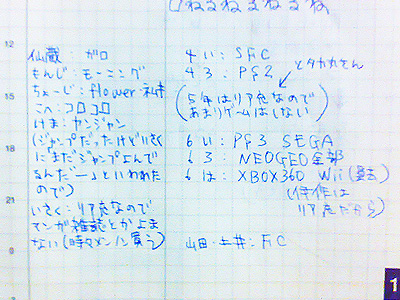 ねるねるねるね
12
仙蔵：ガロ
もんじ：モーニング
ちょーじ：flower・
こへ：コロコロ
けま：ヤンジャン
(ジャンプだったけどいさく
にまだジャンプよんで
るんだー」といわれた
ので)
いさく：リア充なので
マンガ雑誌とかよま
ない(時々メンノン買う)
15
18
4い：SFC
4ろ：PS2
とタカ丸さん
(5年はリア充なので
あまりゲームはしない)
6い：PS3 SEGA
6ろ：NEOGEO全部
6は：XBOX360 Wii(食満)
(伊作は
リア充だから)
山田・土井：FC
1